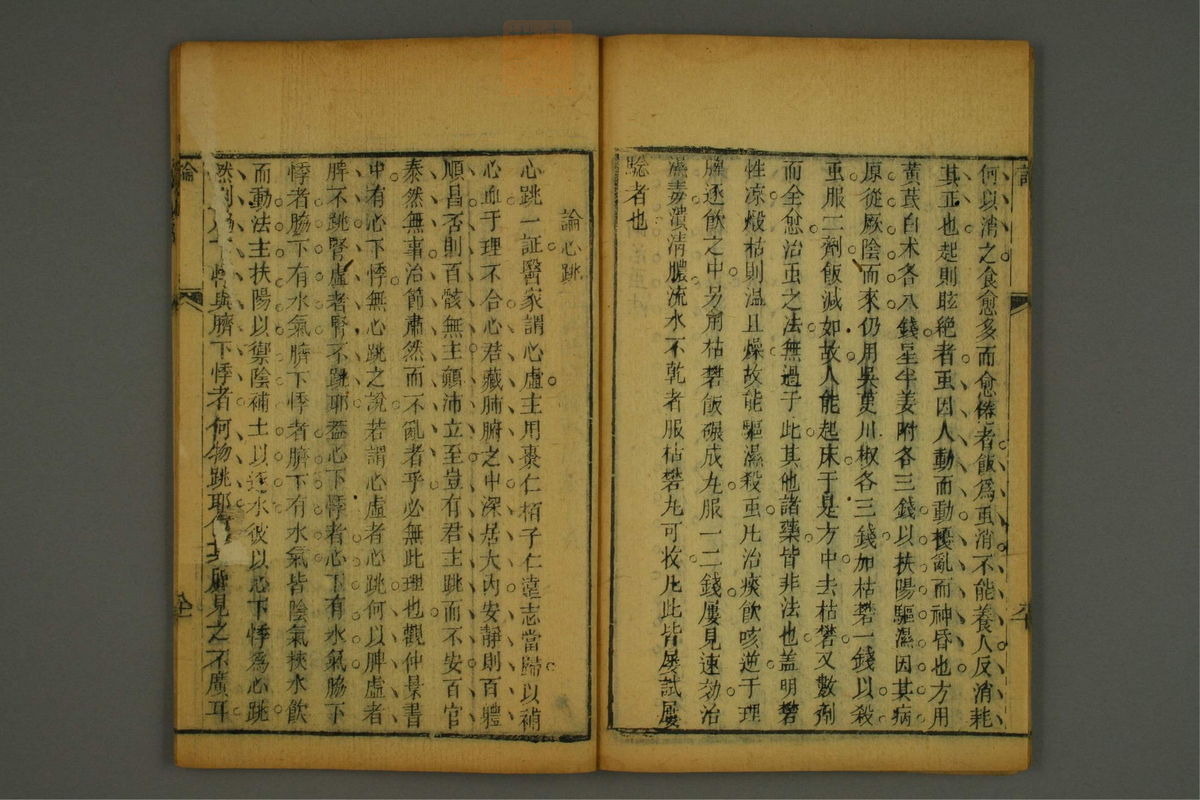 何以消之食愈多而愈倦者飯爲虫消不能養人反消耗
其正也起則眩絶者虫因人動而動擾亂而神昏也方用
黄茋白术各八錢星半姜附各三錢以扶陽驅濕因其病
原從厥陰而來仍用吳茰川椒各三錢加枯礬一錢以殺
虫服二劑飯減如故人能起床于是方中去枯礬又數劑
而全愈治虫之法無過于此其他諸藥皆非法也盖明礬
性凉煅枯則温且燥故能驅濕殺虫凢治痰飲咳逆于理
脾逐飲之中另用枯礬飯碾成丸服一二錢屢見速効治
濕毒潰清膿流水不乾者服枯礬丸可收凢此皆屢試屢
騐者也
論心跳
心跳一証醫家謂心虛主用棗仁栢子仁遠志當歸以補
心血于理不合心君藏腑腑之中深居大內安靜則百體
順昌否則百骸無主顛沛立至豈有君主跳而不安百官
泰然無事治節肅然而不亂者乎必無此理也觀仲景書
中有心下悸無心跳之說若謂心虛者心跳何以脾虛者
脾不跳腎虛者腎不跳耶葢心下悸者心下有水氣脇下
悸者脇下有水氣臍下悸者臍下有水氣皆陰氣挾水飲
而動法主扶陽以禦陰補土以逐水彼以心下悸爲心跳
然則脇下悸與臍下悸者何物跳耶 見之不廣耳
論